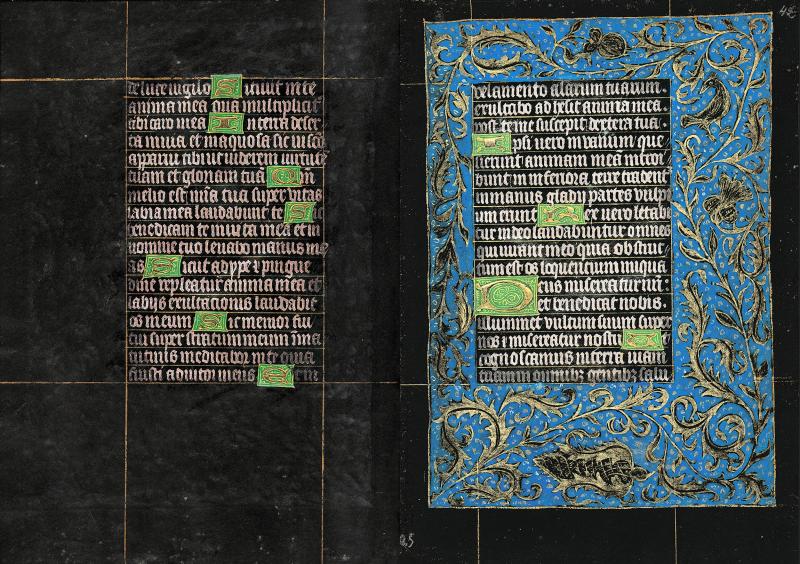 de luce vigilo Sitivit in te
anima mea qua multiplicit
tibi caro mea In terra deser
ta invia et inaquosa sic in sco
apparui tibi ut viderem virtute
tuam et gloriam tuā Qm̄
melio est mīa tua super vitas
labia mea laudabunt te Sic
benedicam te in vita mea et in
nomine tuo levabo manus me
as Sicut adype et pingue
dine repleatur anima mea et
labijs exultacionis laudabit
os meum Sic memor fui
tui super stratum meum in ma
tutinis meditabor in te quia
fuisti adiutor meus Et in
velamento alarum tuarum
exultabo adhesit anima mea
post te me suscepit dextera tua
Ipsi vero in vanum que
sierunt animam meā introi
bunt in inferiora terre tradent
in manus gladij partes vulpi
um erunt Rex vero letabi
tur in deo laudabuntur omnes
qui iurant in eo quia obstruc
tum est os loquencium iniqua
Deus misereatur nri
et benedicat nobis
illuminet vultum suum super
nos et misereatur nostri Ut
cognoscamus in terra viam
tuam in omnibz gentibz salu
42
25